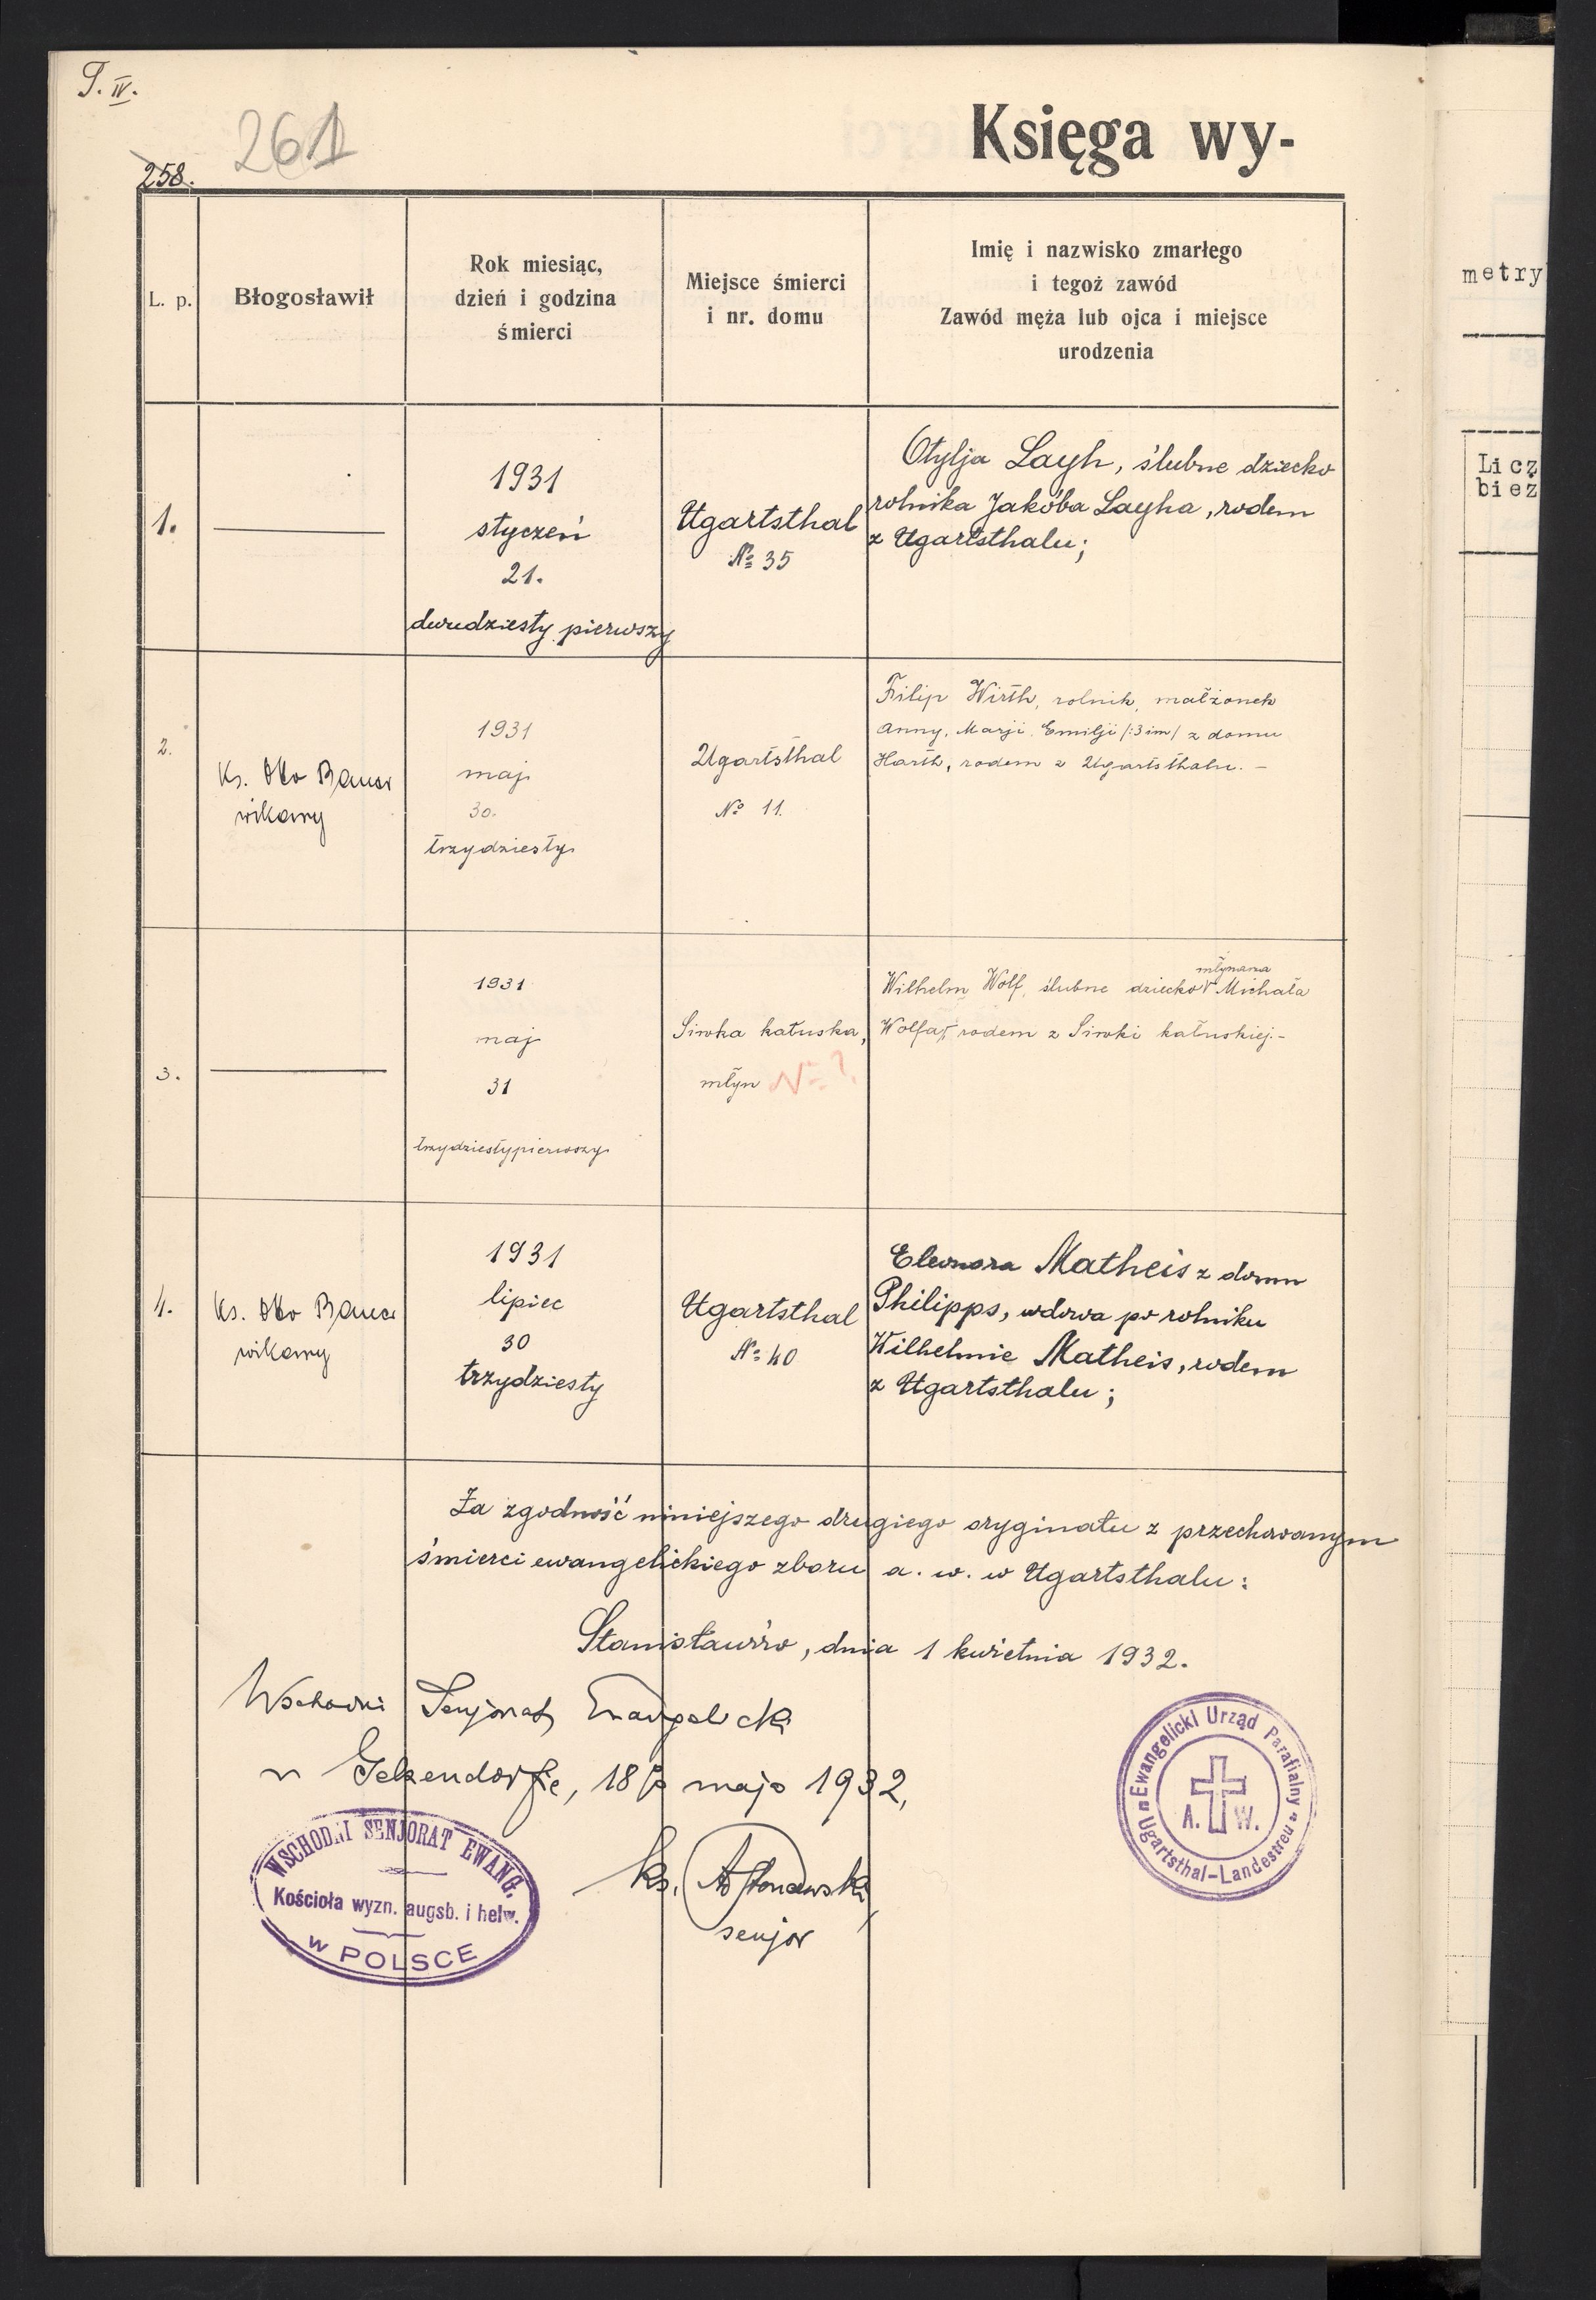 T. IV.
261
258.
Księga wy-
L. p.
Błogosławił
Rok miesiąc,
dzień i godzina
śmierci
Miejsce śmierci
i nr. domu
Imię i nazwisko zmarłego
i tegoż zawód
Zawód męża lub ojca i miejsce
urodzenia
1.
1931
styczeń
21.
dwudziesty pierwszy
Ugartsthal
№ 35
Otylja Layh, ślubne dziecko
rolnika Jakóba Layha, rodem
z Ugartsthalu;
2.
Ks. Otto Bauer
wikary
1931
maj
30.
trzydziesty
Ugartsthal
№ 11.
Filip Wirth, rolnik, małżonek
Anny, Marji, Emilji /:3 im/ z domu
Harth, rodem z Ugartsthalu. –
3.
1931
maj
31
trzydziestypierwszy
Siwka kałuska,
młyn № ?
młynarza
Wilhelm Wolf, ślubne dziecko Michała
Wolfa, rodem z Siwki kałuskiej.–
4.
Ks. Otto Bauer
wikary
1931
lipiec
30
trzydziesty
Ugartsthal
№ 40
Eleonora Matheis z domu
Philipps, wdowa po rolniku
Wilhelmie Matheis, rodem
z Ugartsthalu;
Za zgodność niniejszego drugiego oryginału z przechowanym
śmierci ewangelickiego zboru a. w. w Ugartsthalu:
Stanisławów, dnia 1 kwietnia 1932.
Wschodni Senjorat Ewangelicki
w Gelsendorfie, 18/5 maja 1932,
ks.
senjor
WSCHODNI SENJORAT EWANG.
Kościoła wyzn. augsb. i helw.
w POLSCE
Ewangelicki Urząd Parafialny
A. W.
Ugartsthal-Landestreu
metry
Licz
bież